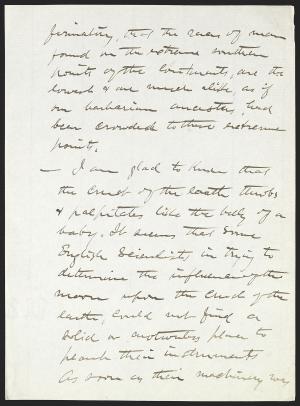 firmatory, that the races of man
found on the extreme southern
points of the Continents, are the
lowest & are much alike, as if
our barbarian ancestors, had
been crowded to these extreme
points.
— I am glad to know that
the crust of the earth throbs
& palpitates like the belly of a
baby. It seems that some
English Scientists in trying to
determine the influence of the
moon upon the crust of the
earth, could not find a
solid or motionless place to
plant their instruments
As soon as their machinery was